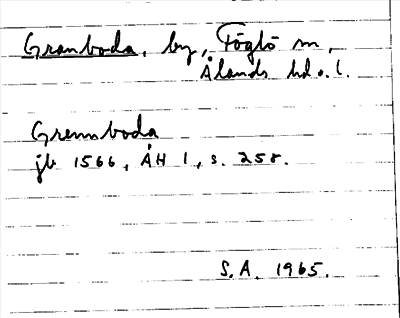 Granboda, by, Föglö sn,
Ålands hd o. l.
Grennsboda
jb 1566, ÅH 1, s. 258.
S.A. 1965.